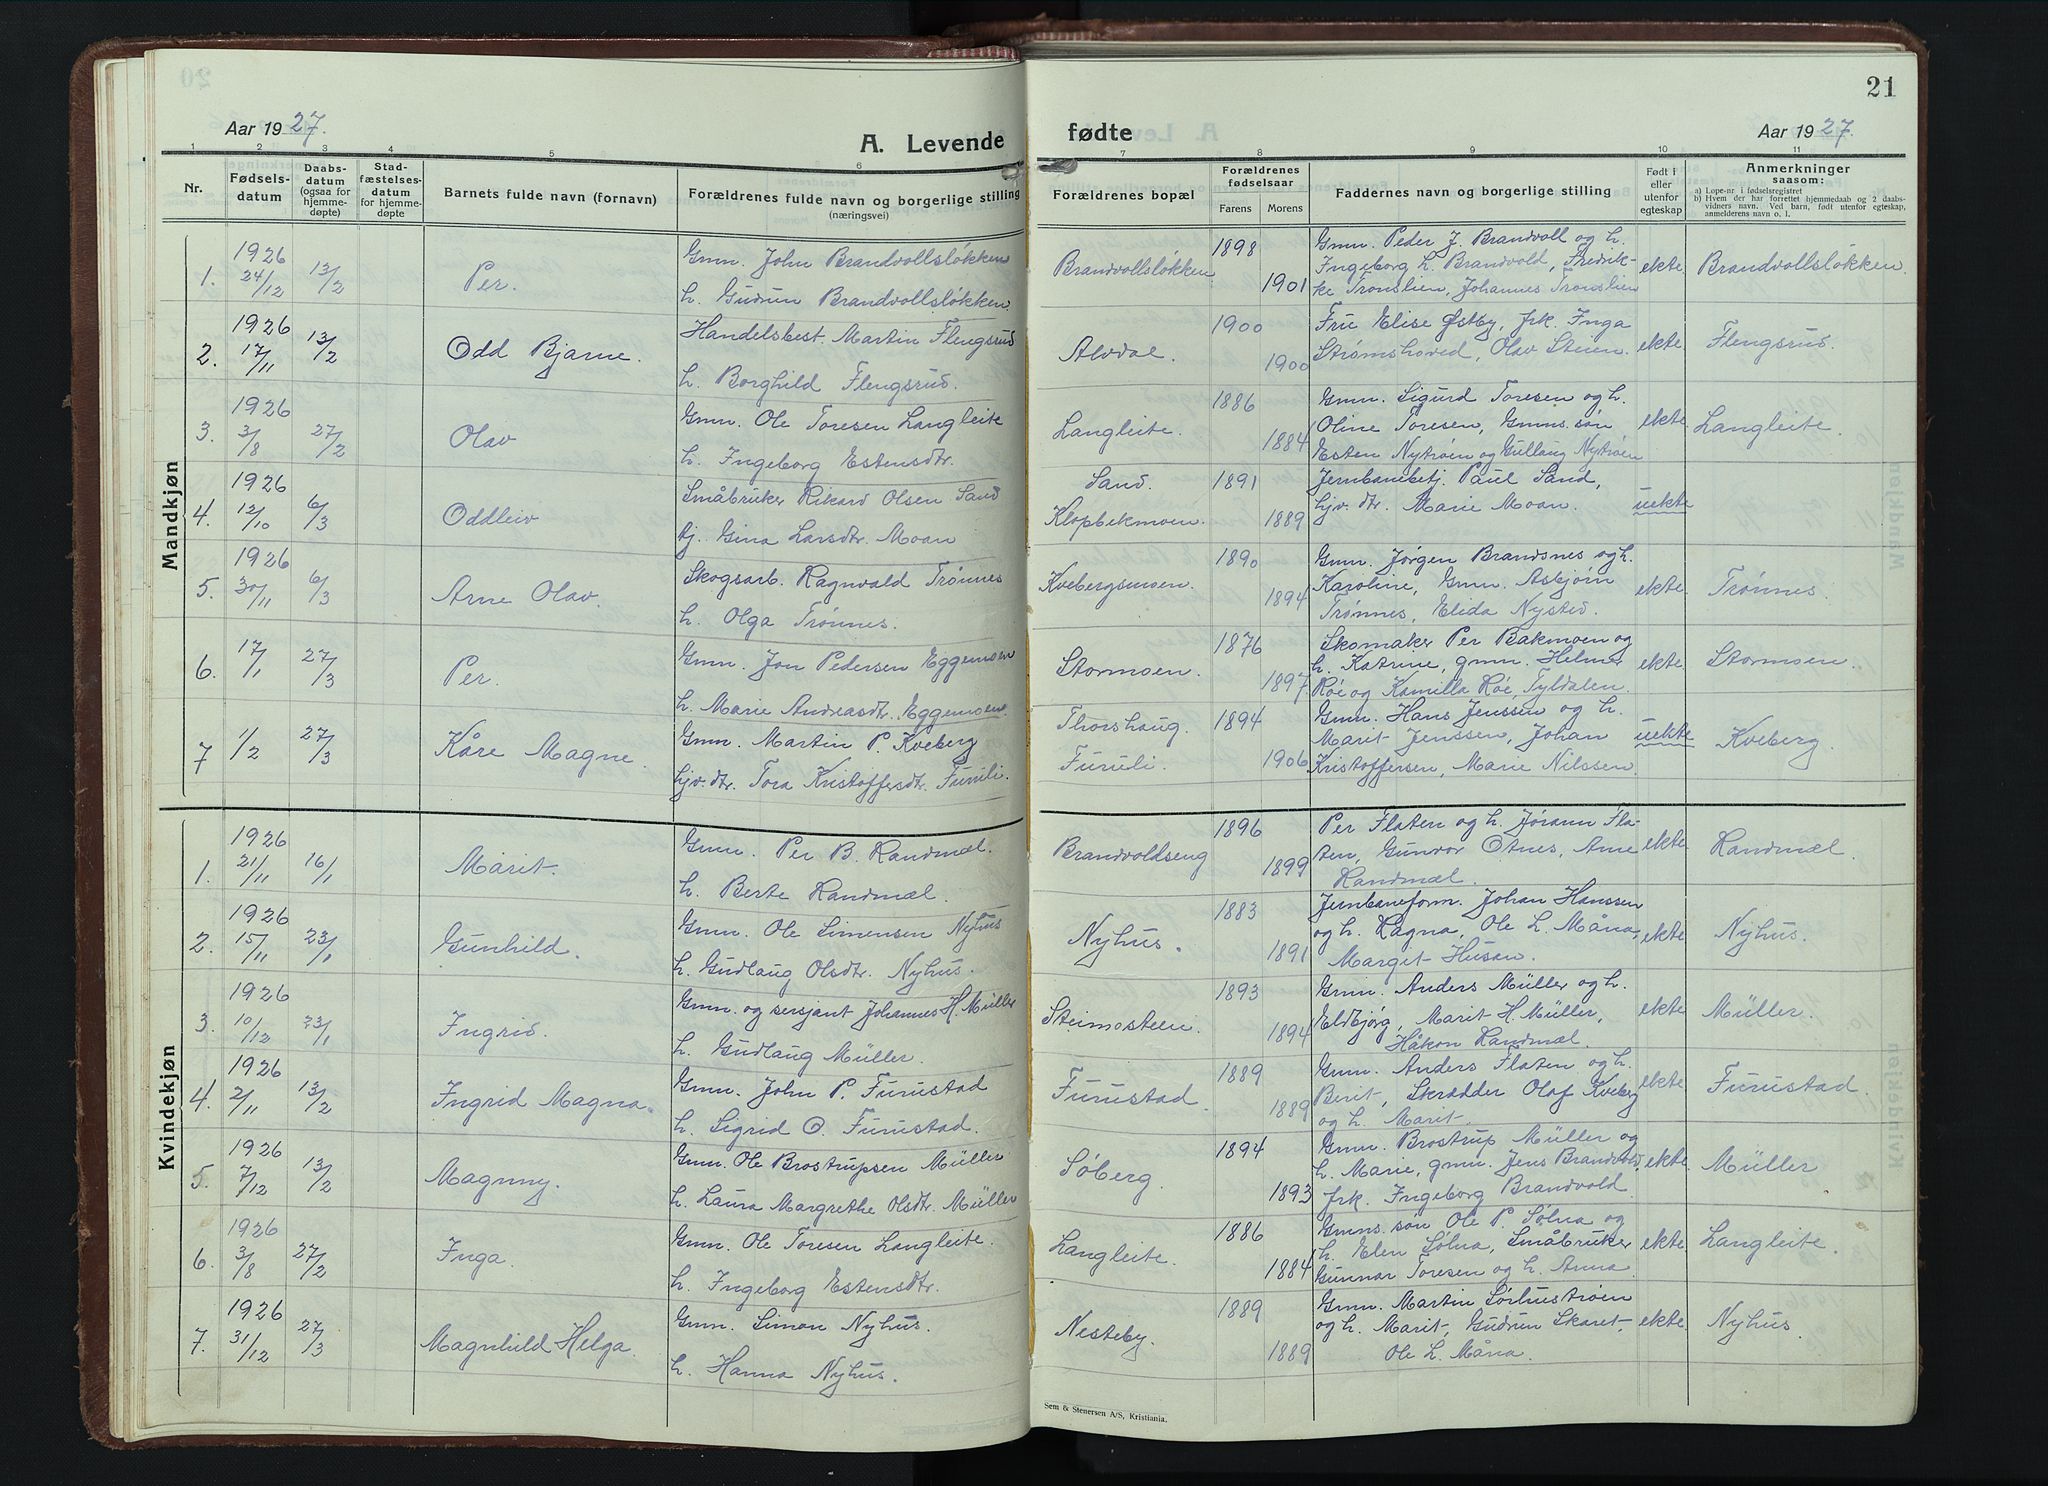 Aar 1927.
A. Levende
1 2 3 4 5 6
Nr.
Fødsels-
datum
Daabs-
datum
(ogsaa for
hjemme-
døpte)
Stad-
fæstelses-
datum
for hjemme-
døpte
Barnets fulde navn (fornavn)
Forældrenes fulde navn og borgerlige stilling
(næringsvei)
Mandkjøn
1. 1926 24/12 13/2 Per. Gmn. John Brandvollsløkken
h. Gudrun Brandvollsløkken
2. 1926 17/11 13/2 Odd Bjarne. Handelsbest. Martin Flengsrud
h. Borghild Flengsrud.
3. 1926 3/8 27/2 Olav Gmn. Ole Toresen Langleite
h. Ingeborg Estensdtr.
4. 1926 12/10 6/3 Oddleiv Småbruker Rikard Olsen Sand
tj. Gina Larsdtr. Moan
5. 1926 30/11 6/3 Arne Olav. Skogsarb. Ragnvald Trønnes
h. Olga Trønnes.
6. 17/1 27/3 Per. Gmn. Jon Pedersen Eggemoen
h. Marie Andreasdtr. Eggemoen.
7 1/2 27/3 Kåre Magne. Gmn. Martin P. Kveberg
hjv. dtr. Tora Kristoffersdtr. Furuli.
Kvindekjøn
1. 1926 21/11 16/1 Marit. Gmn. Per B. Randmæl.
h. Berte Randmæl.
2. 1926 15/11 23/1 Gunhild. Gmn. Ole Simensen Nyhus
h. Gudlaug Olsdtr. Nyhus.
3. 1926 10/12 23/1 Ingrid. Gmn. og sersjant Johannes H. Müller
h. Gudlaug Müller.
4. 1926 2/11 13/2 Ingrid Magna. Gmn. John P. Furustad
h. Sigrid O. Furustad.
5. 1926 7/12 13/2 Magnny. Gmn. Ole Brostrupsen Müller
h. Laura Margrethe Olsdtr. Müller
6. 1926 3/8 27/2 Inga. Gmn. Ole Toresen Langleite.
h. Ingeborg Estensdtr.
7. 1926 31/12 27/3 Magnhild Helga. Gmn. Simon Nyhus.
h. Hanna Nyhus.
21
fødte
Aar 1927.
7 8 9 10 11
Forældrenes bopæl
Forældrenes
fødselsaar
Farens Morens
Faddernes navn og borgerlige stilling
Født i
eller
utenfor
egteskap
Anmerkninger
saasom:
a) Løpe-nr i fødselsregistret
b) Hvem der har forrettet hjemmedaab og 2 daabs-
vidners navn. Ved barn, født utenfor egteskap,
anmelderens navn o. l.
Brandvollsløkken 1898 1901 Gmn. Peder J. Brandvoll og h.
Ingeborg L. Brandvold, Fredrik-
ke Tronslien, Johannes Tronslien ekte. Brandvollsløkken.
Alvdal. 1900 1900 Fru Elise Østby, frk. Inga
Strømshoved, Olav Steien. ekte. Flengsrud.
Langleite. 1886 1884 Gmn. Sigurd Toresen og h.
Oline Toresen, Gmns. søn
Esten Nytrøen og Gullaug Nytrøen ekte. Langleite.
Sand.
Klopbekmoen. 1891 1889 Jernbanebetj. Paul Sand,
hjv. dtr. Marie Moan. uekte
Kvebergsmoen. 1890 1894 Gmn. Jørgen Brandsnes og h.
Karoline, Gmn. Asbjørn
Trønnes, Elida Nysted. ekte. Trønnes.
Stormoen. 1876 1897 Skomaker Per Bakmoen og
h. Katrine, gmn. Helmer
Røe og Kamilla Røe, Tyldalen. ekte. Stormoen.
Thorshaug.
Furuli. 1894 1906 Gmn. Hans Jenssen og h.
Marit Jenssen, Johan
Kristoffersen, Marie Nilssen. uekte Kveberg.
Brandvoldseng 1896 1899 Per Flaten og h. Jørann Fla-
ten, Gunvor Otnes, Arne
Randmæl. ekte. Randmæl.
Nyhus. 1883 1891 Jernbaneform. Johan Hanssen
og h. Ragna, Ole L. Måna,
Margit Husan. ekte Nyhus.
Steimosteen. 1893 1894 Gmn. Anders Müller og h.
Eldbjørg, Marit H. Müller,
Håkon Randmæl. ekte Müller.
Furustad. 1889 1889 Gmn. Anders Flaten og h.
Berit, Skrædder Olaf Kveberg
og h. Marit. ekte Furustad
Søberg. 1894 1893 Gmn. Brostrup Müller og
h. Marie, gmn. Jens Brandvold,
frk. Ingeborg Brandvold. ekte. Müller
Langleite. 1886 1884 Gmns. søn Ole P. Sølna og
h. Elen Sølna, Småbruker
Gunnar Toresen og h. Anna. ekte. Langleite.
Nesteby. 1889 1889 Gmn. Martin Sørhustrøen
og h. Marit, Gudrun Skaret,
Ole L. Måna. ekte. Nyhus.
Sem & Stenersen A/S, Kristiania.